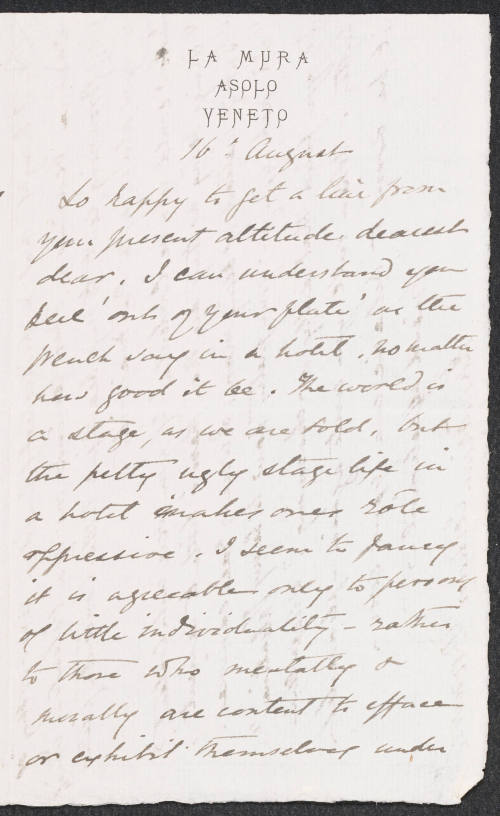 LA MURA
ASOLO
VENETO
16th August
So happy to get a line from
your present altitude dearest
dear. I can understand you
feel 'out of your plate' as the
french say in a hotel, no matter
how good it be. The world is
a stage, as we are told, but
the petty ugly stage life in
a hotel makes ones rôle
oppressive. I seem to fancy
it is agreeable only to persons
of little individuality - rather
to those who mentally &
morally are content to efface
or exhibit themselves under